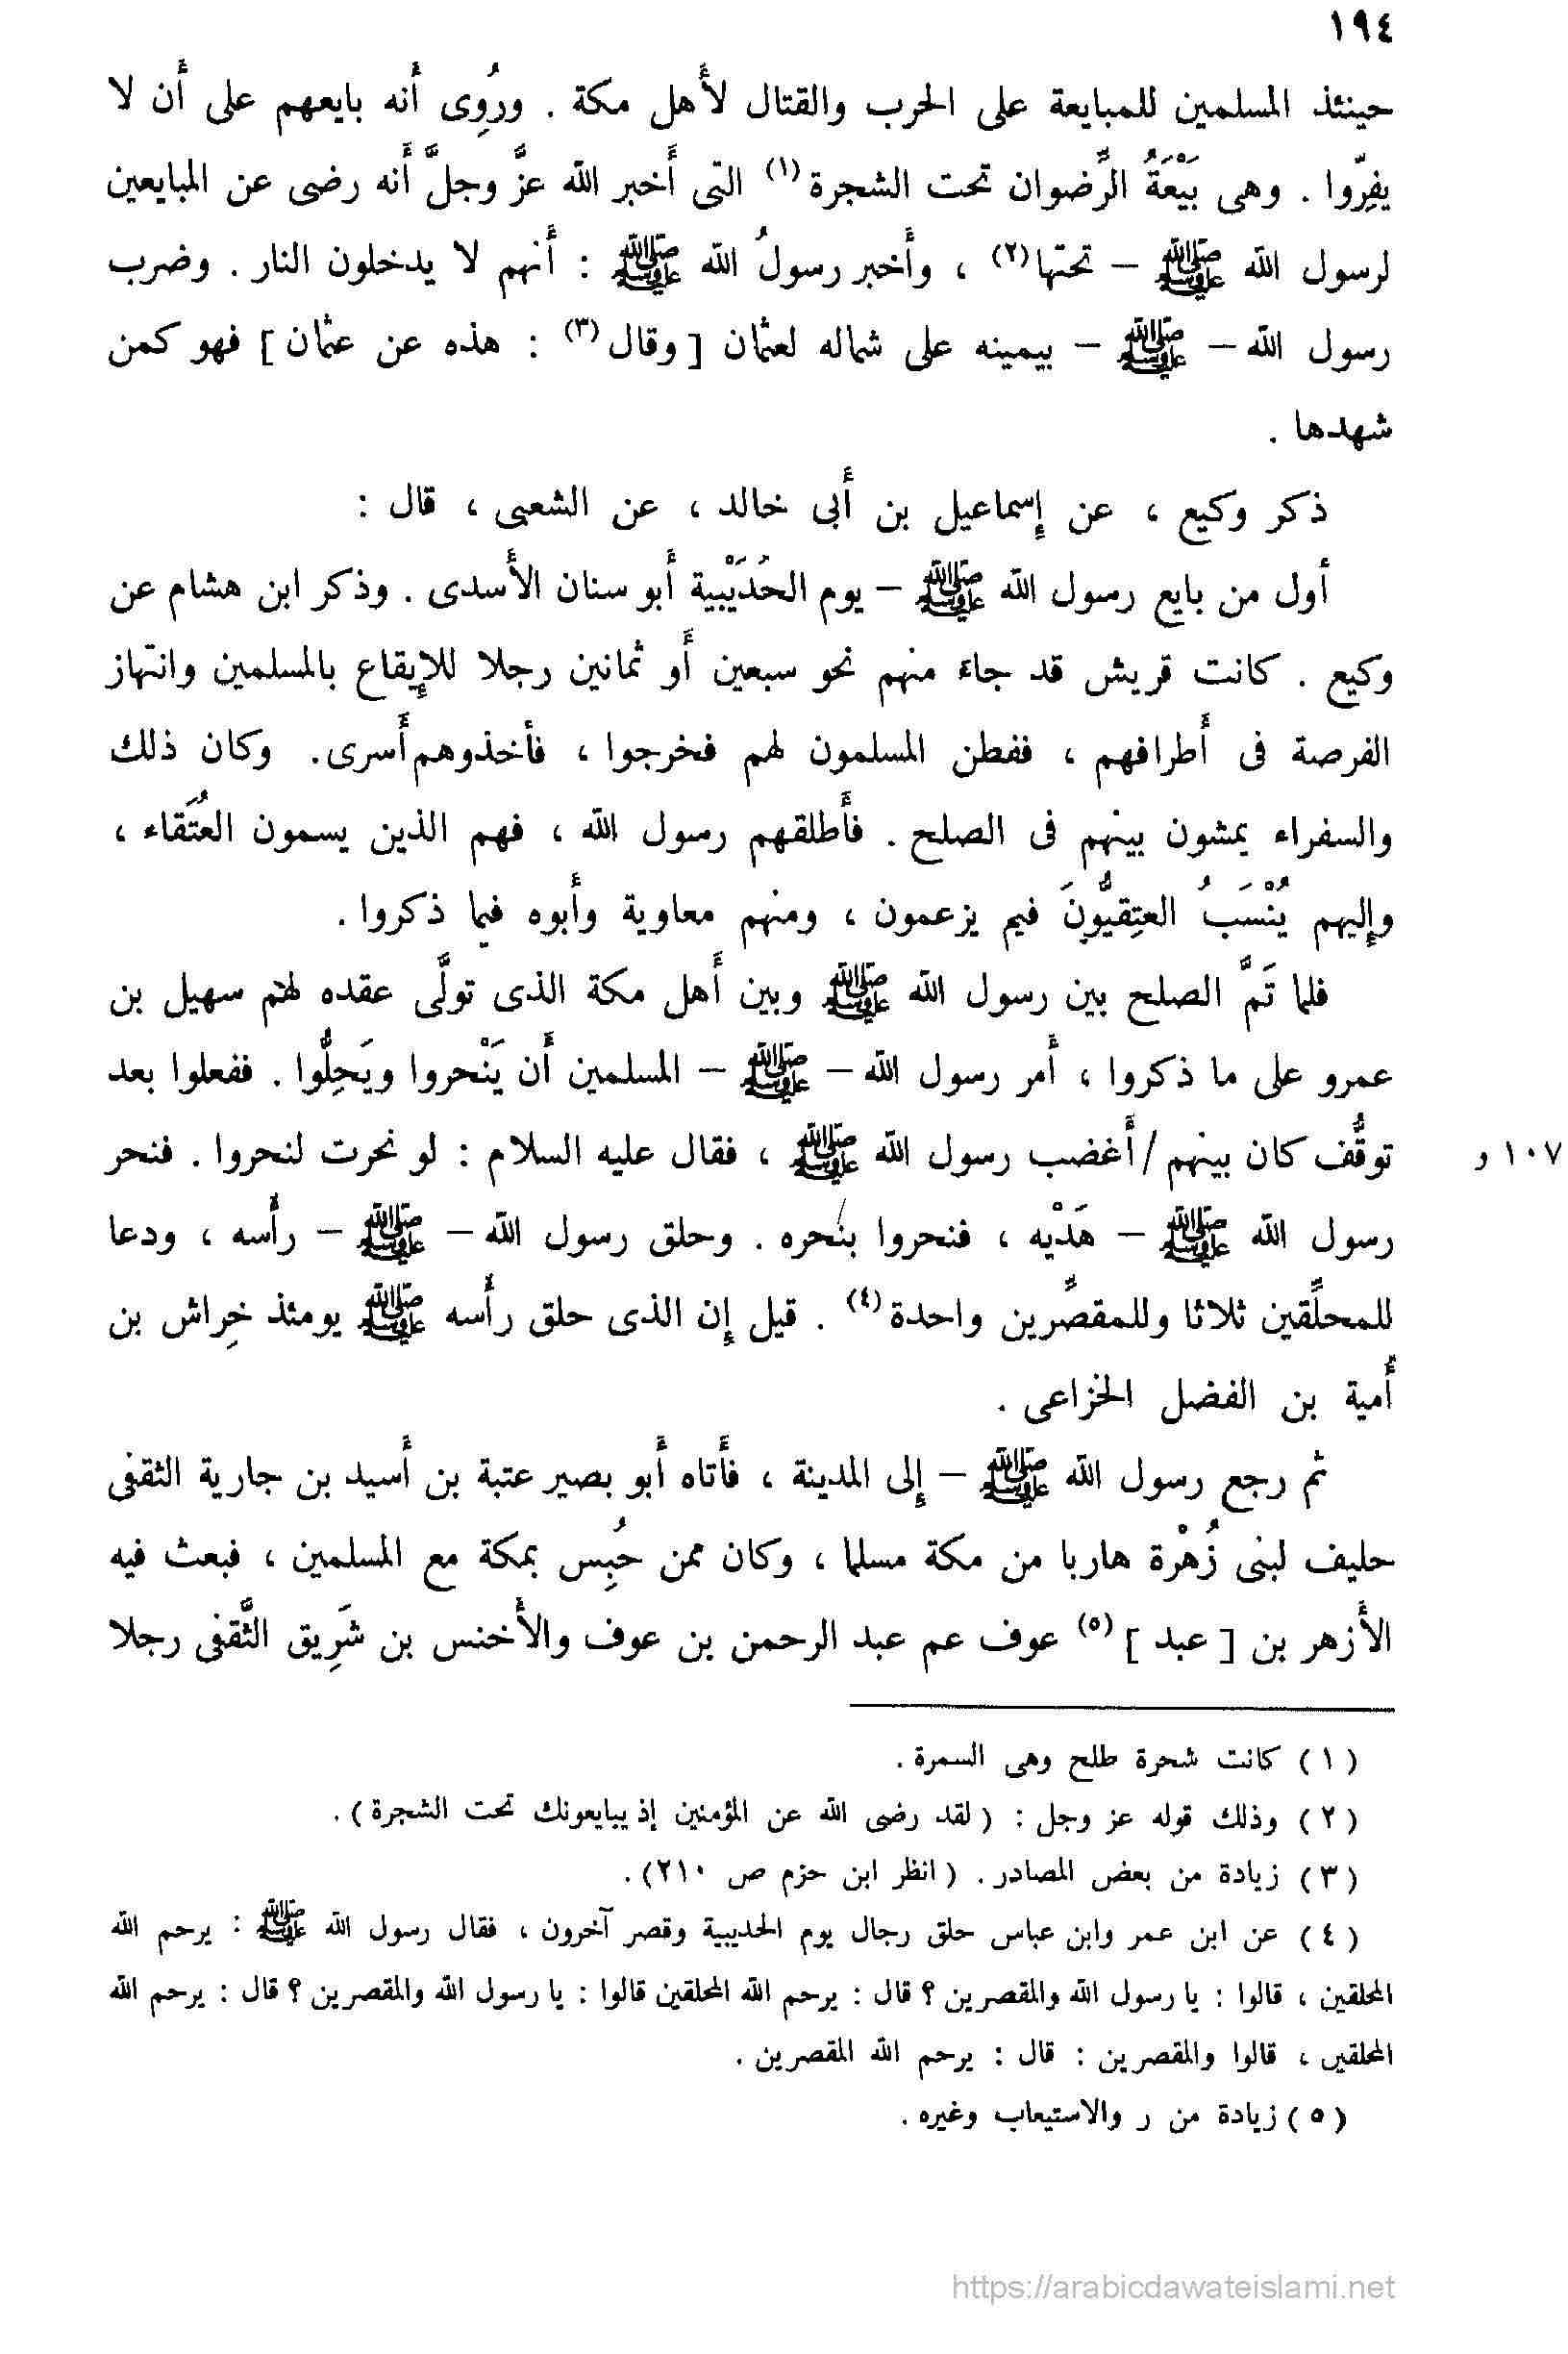 ١٩٤
حينئذ المسلمين للمبايعة على الحرب والقتال لأَهل مكة . ورُوِى أَنه بايعهم على أَن لا
يفِرّوا . وهى بَيْعَةُ الرِّضوان تحت الشجرة (١) التى أَخبر الله عزَّ وجلَّ أَنه رضى عن المبايعين
لرسول الله ﷺ – تحتها (٢) ، وأَخبر رسولُ الله ﷺ : أَنهم لا يدخلون النار . وضرب
رسول الله – ﷺ – بيمينه على شماله لعثمان [ وقال (٣) : هذه عن عثمان ] فهو كمن
شهدها .
ذكر وكيع ، عن إِسماعيل بن أَبى خالد ، عن الشعبى ، قال :
أول من بايع رسول الله ﷺ – يوم الحُدَيْبية أَبو سنان الأَسدى . وذكر ابن هشام عن
وكيع . كانت قريش قد جاءَ منهم نحو سبعين أَو ثمانين رجلا للإِيقاع بالمسلمين وانتهاز
الفرصة فى أَطرافهم ، ففطن المسلمون لهم فخرجوا ، فأخذوهم أَسرى . وكان ذلك
والسفراء يمشون بينهم فى الصلح . فأَطلقهم رسول الله ، فهم الذين يسمون العُتَقاء ،
وإِليهم يُنْسَبُ العتِقيُّونَ فيم يزعمون ، ومنهم معاوية وأَبوه فيما ذكروا .
فلما تَمَّ الصلح بين رسول الله ﷺ وبين أَهل مكة الذى تولَّى عقده لهم سهيل بن
عمرو على ما ذكروا ، أَمر رسول الله – ﷺ – المسلمين أَن يَنْحروا ويَحِلُّوا . ففعلوا بعد
توقُّف كان بينهم /أَغضب رسول الله ﷺ ، فقال عليه السلام : لو نحرت لنحروا . فنحر
١٠٧ و
رسول الله ﷺ – هَدْيه ، فنحروا بنحره . وحلق رسول الله – ﷺ – رأسه ، ودعا
للمحلِّقين ثلاثا وللمقصِّرين واحدة (٤) . قيل إِن الذى حلق رأسه ﷺ يومئذ خِراش بن
أمية بن الفضل الخزاعى .
ثم رجع رسول الله ﷺ – إِلى المدينة ، فأَتاه أَبو بصير عتبة بن أَسيد بن جارية الثقفى
حليف لبنى زُهْرة هاربا من مكة مسلما ، وكان ممن حُبِس بمكة مع المسلمين ، فبعث فيه
الأَزهر بن [ عبد ] (٥) عوف عم عبد الرحمن بن عوف والأَخنس بن شَرِيق الثَّقفى رجلا
(١) كانت شحرة طلح وهى السمرة .
(٢) وذلك قوله عز وجل : (لقد رضى الله عن المؤمنين إذ يبايعونك تحت الشجرة) .
(٣) زيادة من بعض المصادر . (انظر ابن حزم ص ٢١٠) .
(٤) عن ابن عمر وابن عباس حلق رجال يوم الحديبية وقصر آخرون ، فقال رسول الله ﷺ : يرحم الله
المحلقين ، قالوا : يا رسول الله والمقصرين ؟ قال : يرحم الله المحلقين قالوا : يا رسول الله والمقصرين ؟ قال : يرحم الله
المحلقين ، قالوا والمقصرين : قال : يرحم الله المقصرين .
(٥) زيادة من ر والاستيعاب وغيره .
https://arabicdawateislami.net